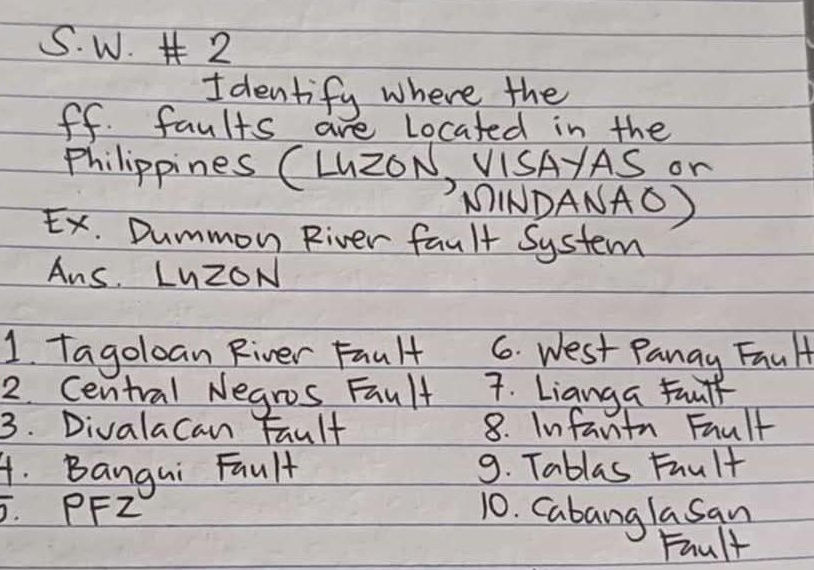 S.W. # 2
Identify where the
ff. faults are Located in the
Philippines (LUZON, VISAYAS or
MINDANAO)
Ex. Dummon River fault System
Ans. LUZON
1. Tagoloan River Fault
2. Central Negros Fault
3. Divalacan Fault
4. Bangui Fault
5. PFZ
6. West Panay Fault
7. Lianga Fault
8. Infanta Fault
9. Tablas Fault
10. Cabanglasan
Fault